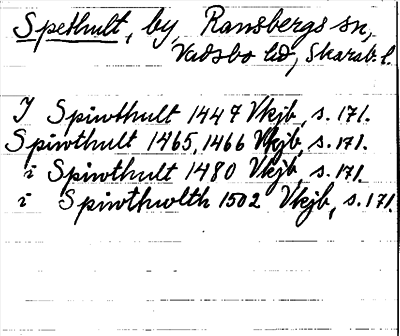 Spethult, by, Ransbergs sn,
Vadsbo hd, Skarab. l.
I Spiwthult 1447 Vkjb, s. 171.
Spiwthult 1465, 1466 Vkjb, s. 171.
i Spiwthult 1480 Vkjb, s. 171.
i Spiwthwlth 1502 Vkjb, s. 171.